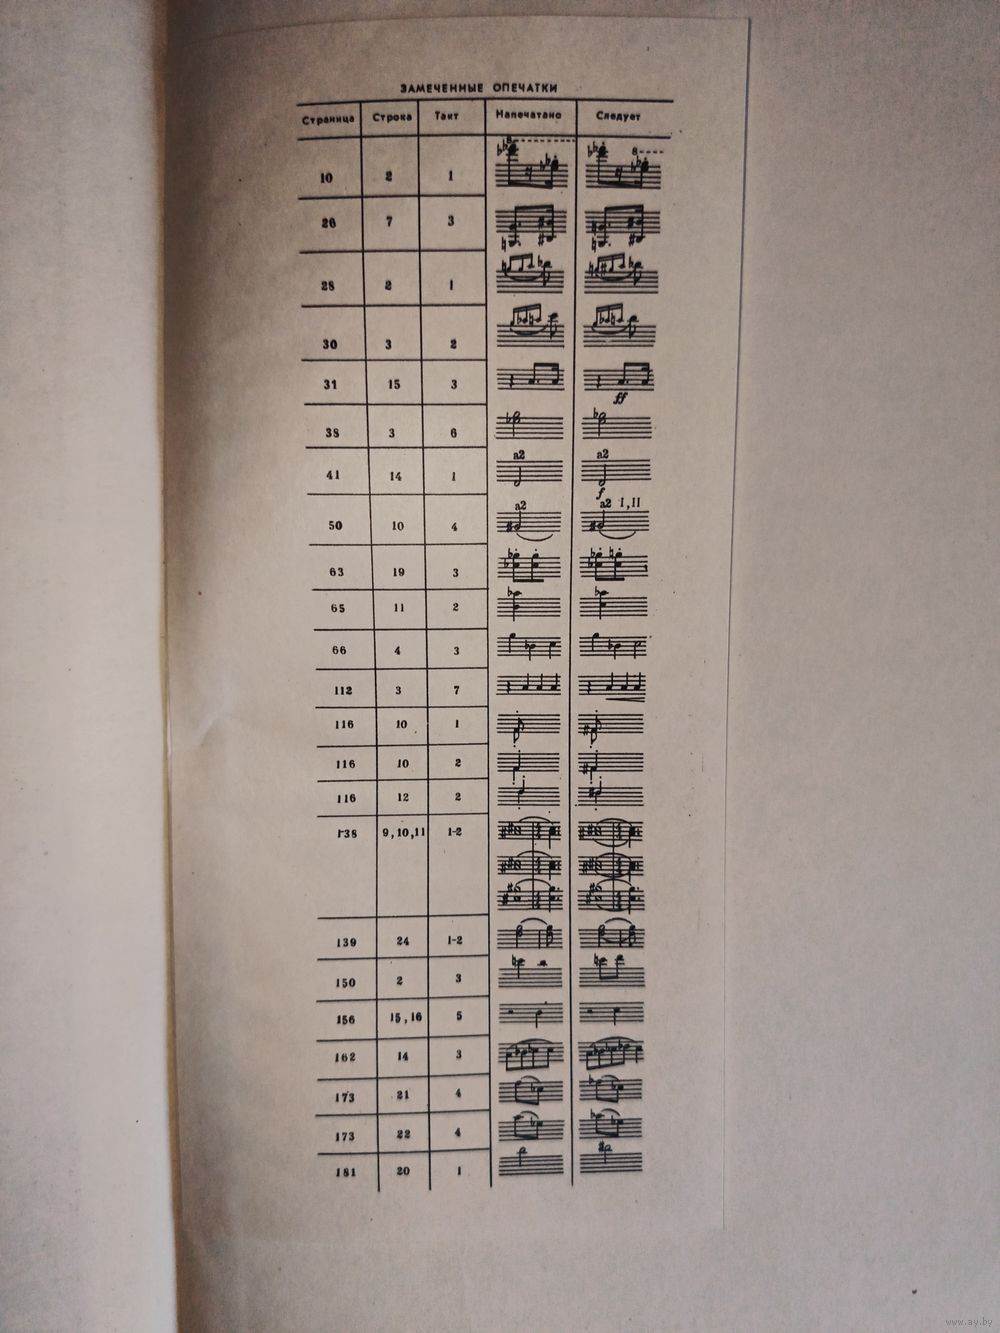 ЗАМЕЧЕННЫЕ ОПЕЧАТКИ
Страница Строка Такт Напечатано Следует
10 2 1 8 8
26 7 3
28 2 1
30 3 2
31 15 3 ff
38 3 6
41 14 1 a2 a2 f
50 10 4 a2 a2 I,II
63 19 3
65 11 2
66 4 3
112 3 7
116 10 1
116 10 2
116 12 2
138 9,10,11 1-2
139 24 1-2
150 2 3
156 15,16 5
162 14 3
173 21 4
173 22 4
181 20 1
www.ay.by